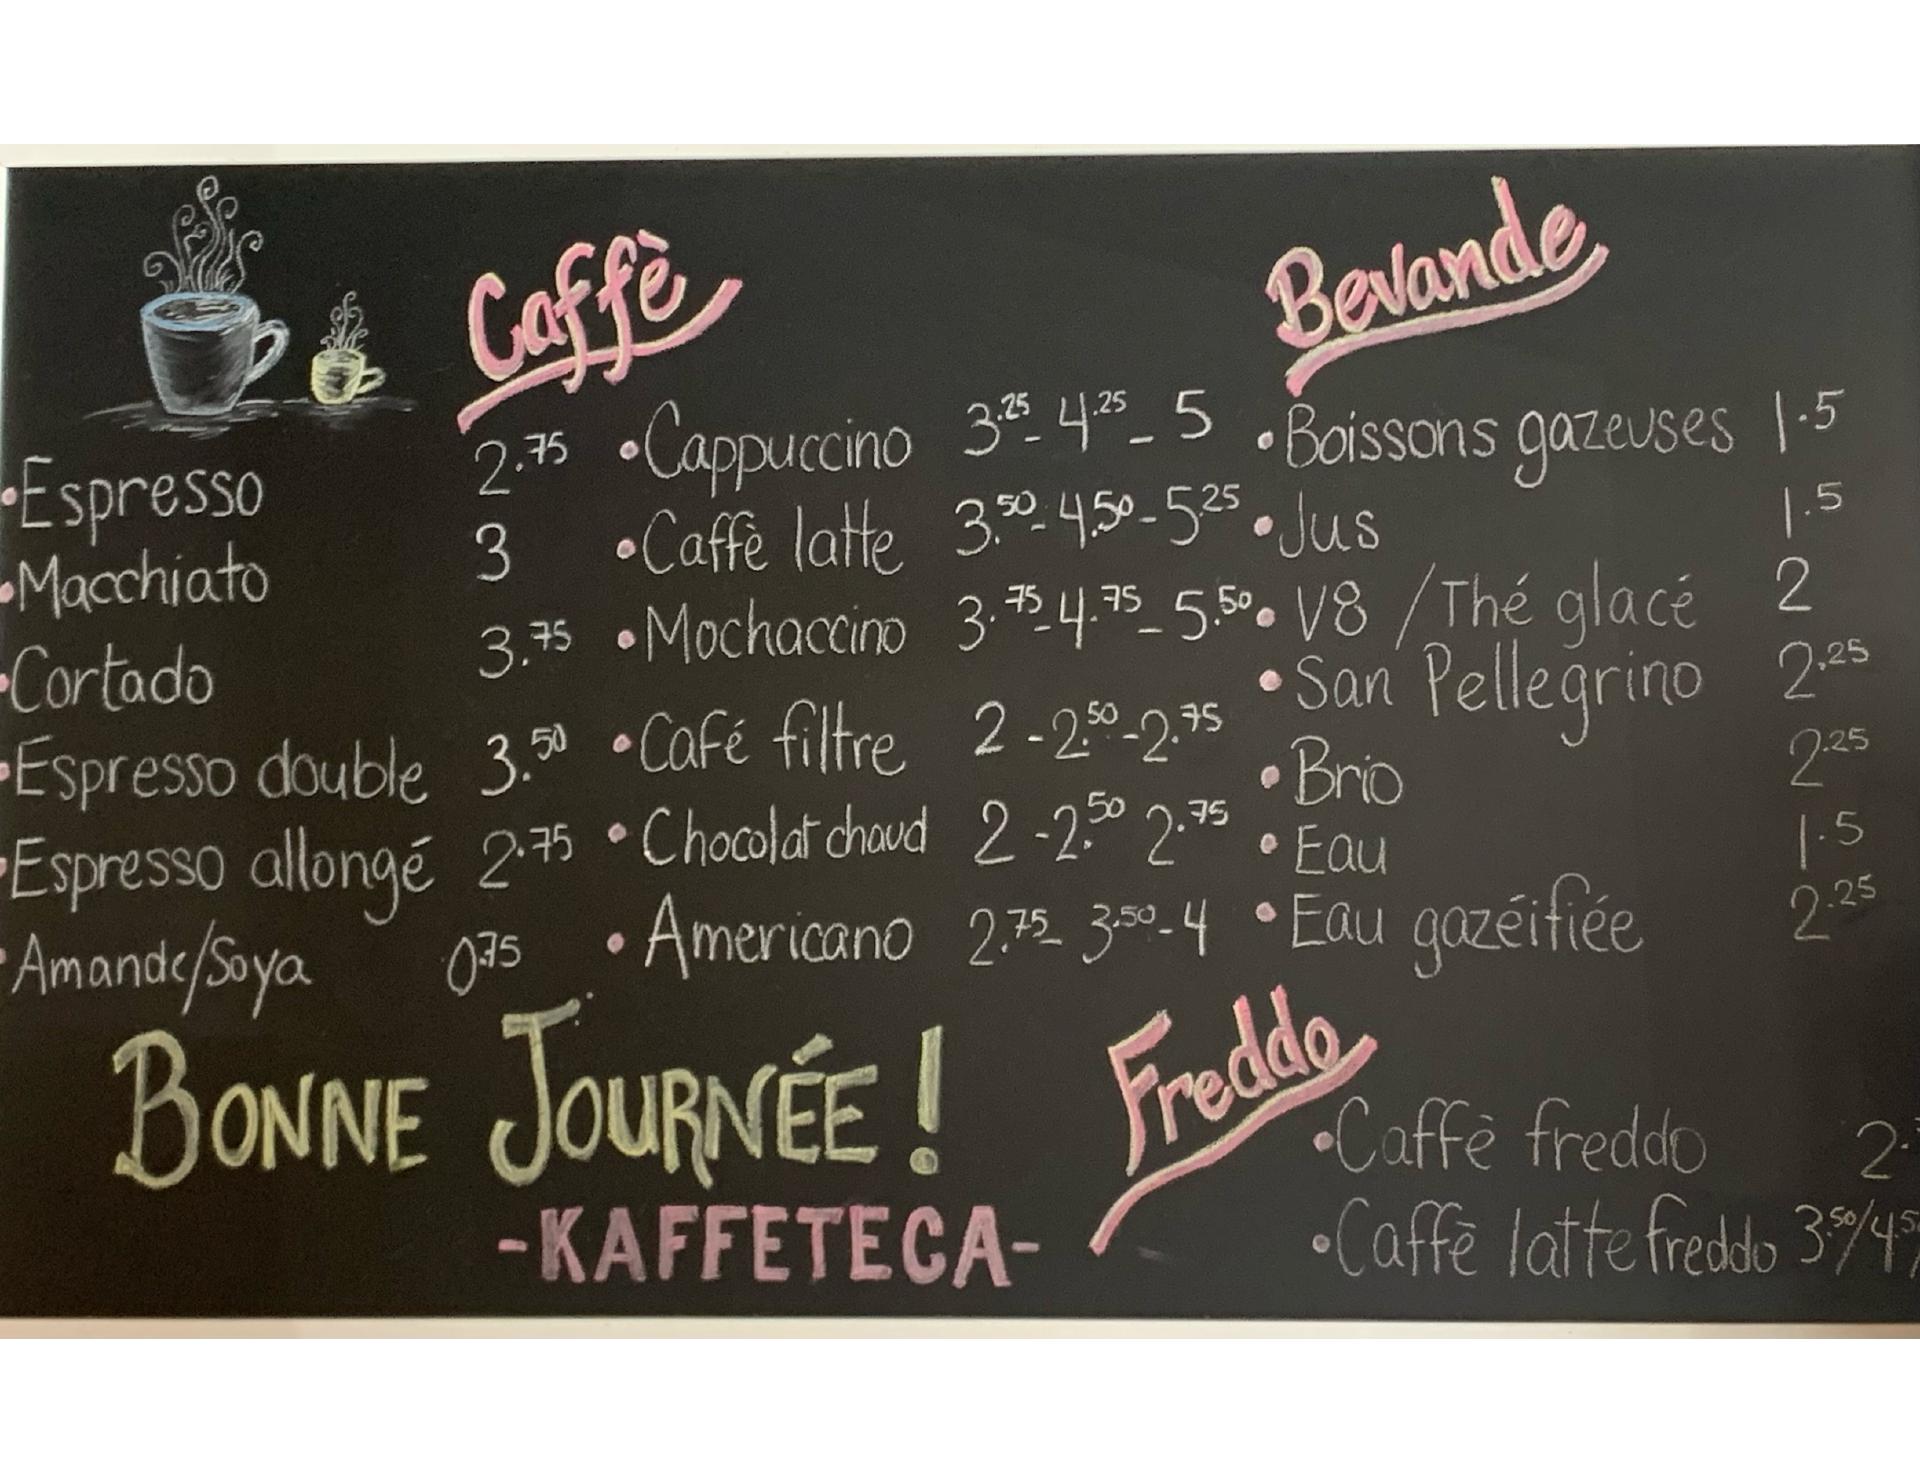 Caffè
•Espresso 2.75
•Macchiato 3
•Cortado 3.75
•Espresso double 3.50
•Espresso allongé 2.75
•Amande/Soya 0.75
•Cappuccino 3.25-4.25-5
•Caffè latte 3.50-4.50-5.25
•Mochaccino 3.75-4.75-5.50
•Café filtre 2-2.50-2.75
•Chocolat chaud 2-2.50 2.75
•Americano 2.75-3.50-4
Bevande
•Boissons gazeuses 1.5
•Jus 1.5
•V8/Thé glacé 2
•San Pellegrino 2.25
•Brio 2.25
•Eau 1.5
•Eau gazéifiée 2.25
Freddo
•Caffè freddo 2.
•Caffè latte freddo 3.50/4.5
BONNE JOURNÉE!
-KAFFETECA-